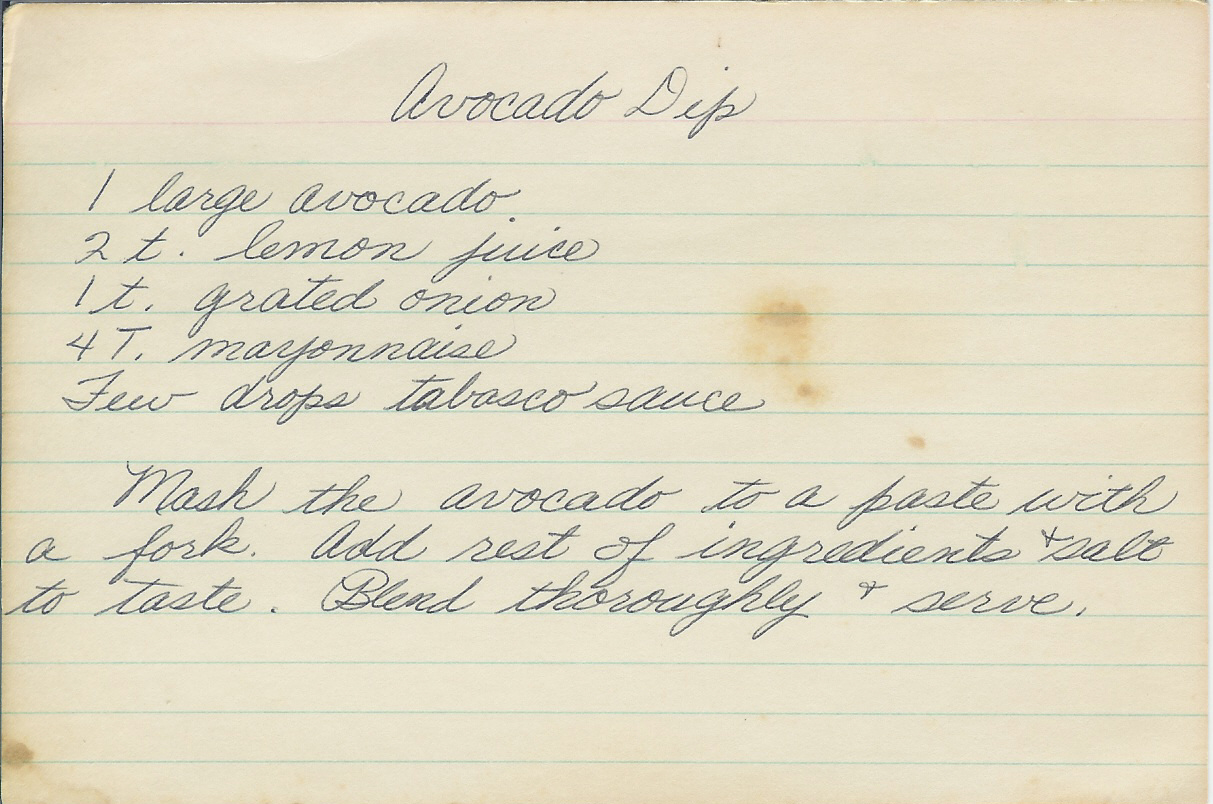 Avocado Dip
1 large avocado
2 t. lemon juice
1 t. grated onion
4 T. mayonnaise
Few drops tabasco sauce
Mash the avocado to a paste with
a fork. Add rest of ingredients & salt
to taste. Blend thoroughly & serve.